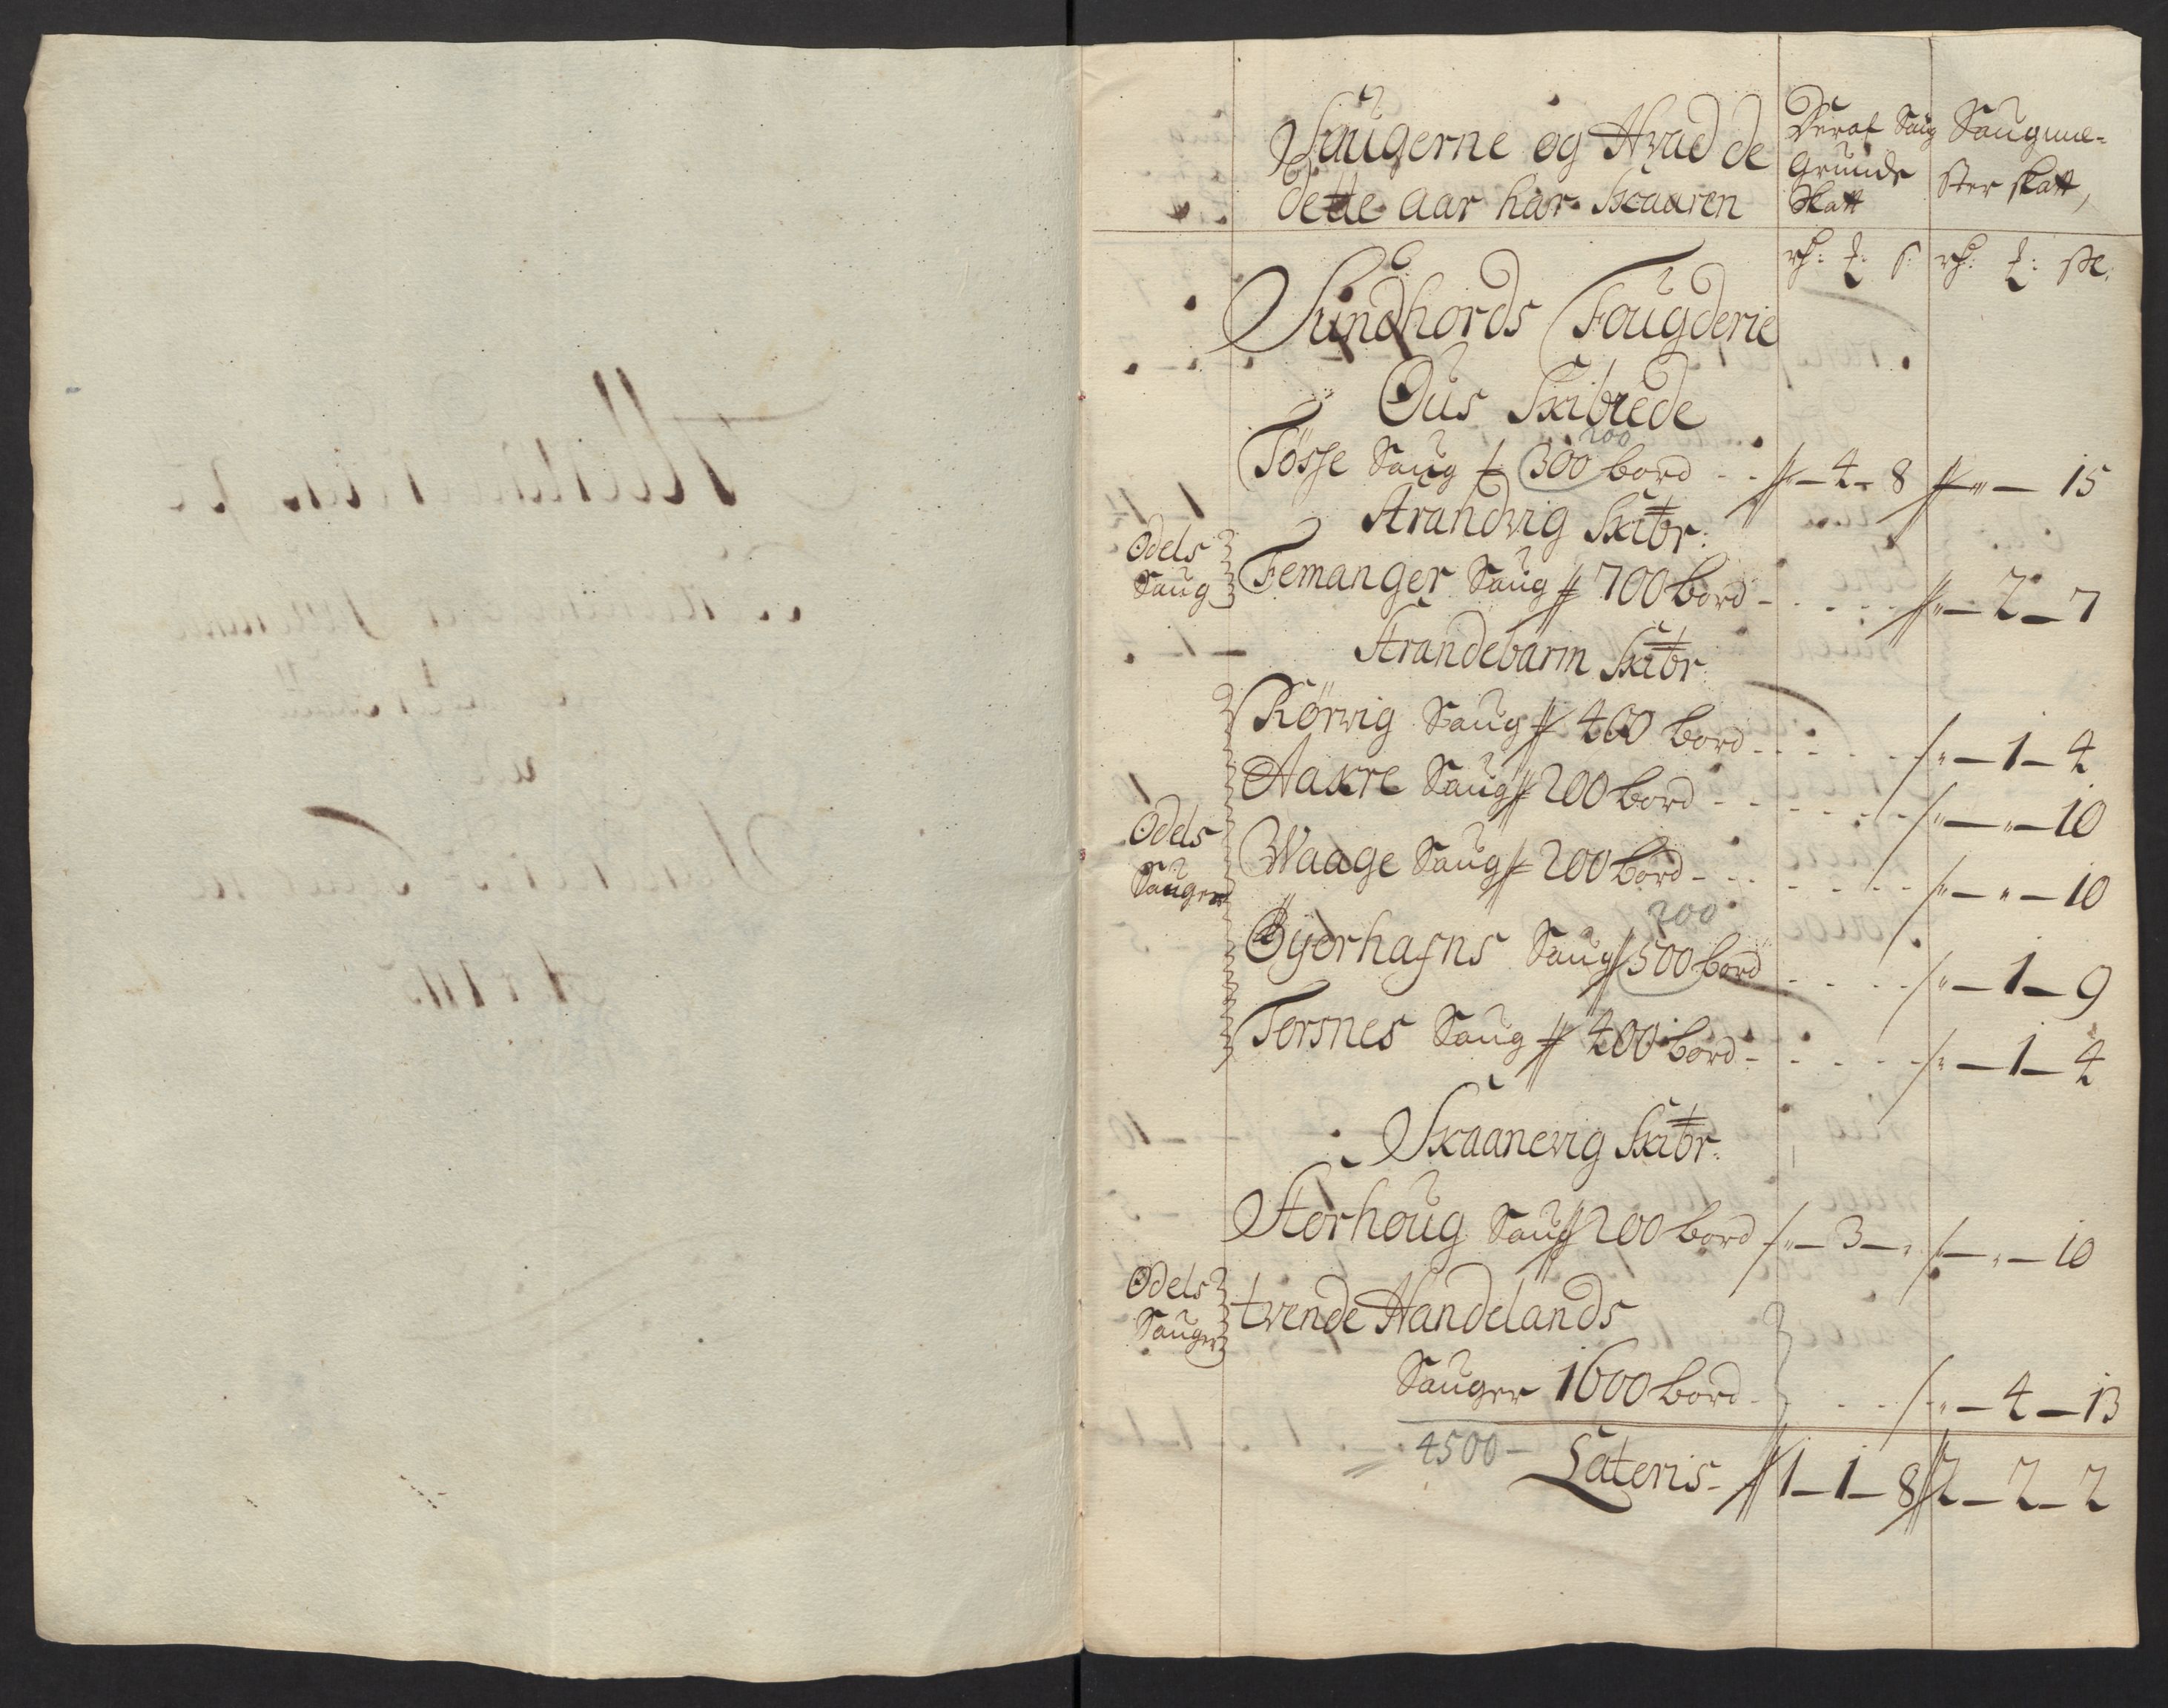 Saugerne og Hvad de
dette aar har Skaaren
Deraf Saug
Grunde
Skatt
Saugme-
ster skatt,
rh: ƶ: s: rh: ƶ: sk:
Sundhords Fougderie
Ous Skibrede
200
Tösse Saug 300 bord - - „ — 4 - 8 „ — 15
Strandvig Skibr:
Odels
Saug
Femanger Saug 700 bord - - - - - „ — 2 — 7
Strandebarm Skibr:
Rörvig Saug 400 bord - - - - - „ — 1 — 4
Aakre Saug 200 bord - - - - - „ — „ — 10
Odels
Sauger
Waage Saug 200 bord - - - - - „ — „ — 10
200
Gyerhafns Saug 500 bord - - - - „ — 1 — 9
Torsnes Saug 400 bord - - - - - „ — 1 — 4
Skaanevig Skibr:
Storhoug Saug 200 bord „ — 3 — „ — „ — 10
Odels
Sauger
tvende Handelands
Sauger 1600 bord - - - - „ — 4 — 13
4500 —
Lateris - 1 — 1 — 8 2 — 2 — 2